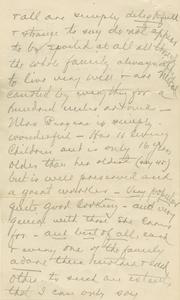 & all are simply delightful
& strange to say do not appear
to be spoiled at all all
the whole family always
to live very well & are
by everything for a
hundred miles around -
Mrs is simply
wonderful - Has 11 living
Children and is only 16 years
older than her oldest (say 45)
but is well preserved and
a great worker - Very popular
quite good looking - and very
with those she cares
for - and best of all, each
& every one of the family
adore themselves & each
other to such an extent
that I can only say